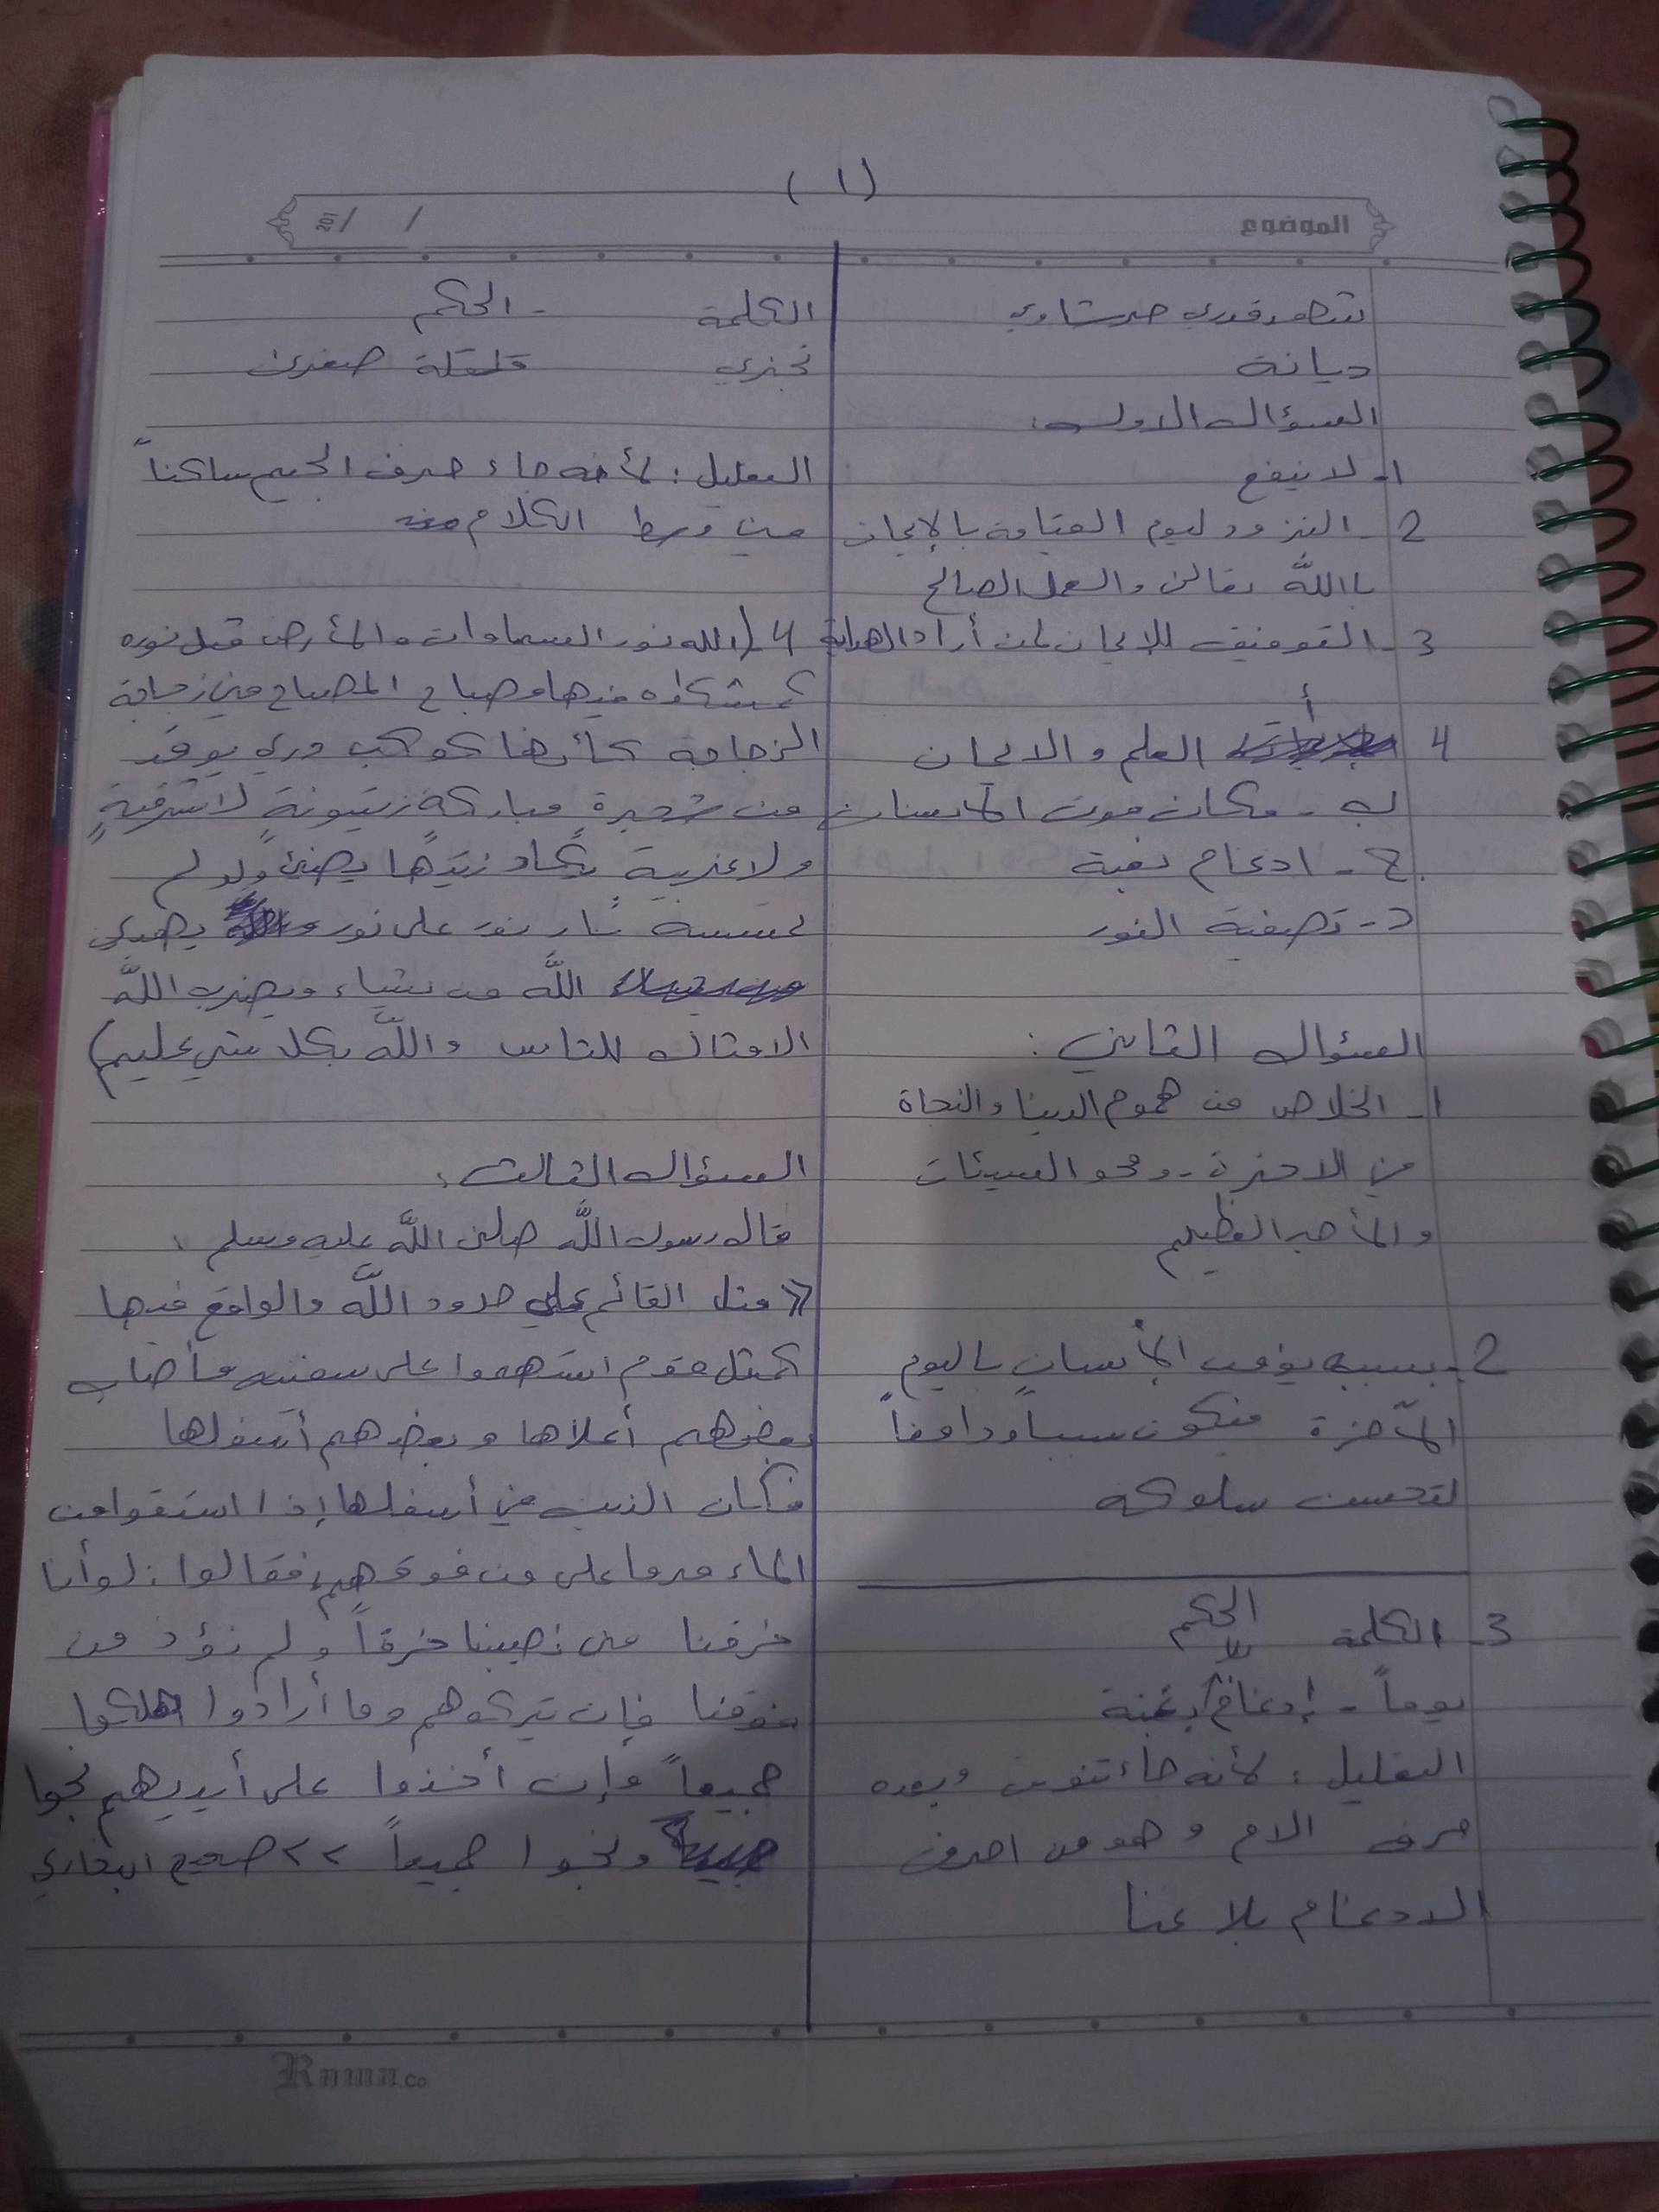 ( ١ )
الموضوع
/ / 201
شهد قدري حرشاوي
ديانة
السؤال الاول:
1- لا ينفع
2- التزود ليوم القيامة بالإيمان
باالله تعالى والعمل الصالح
3- التوفيق للايمان لمن أراد الهداية
4 أ العلم والايمان
ب - مكان موت الأنسان
ج - ادغام بغنة
د - تصفية النور
السؤال الثاني:
1- الخلاص من هموم الدينا والنجاة
في الاخرة - ومحو السيئات
والأجر العظيم
2- بسبب يؤمن الأنسان باليوم
الأخرة فيكون سبباً ودافعاً
لتحسن سلوكه
3- الكلمة الحكم
يوماً - إدغام بلا غنة
التعليل: لأنه جاء تنوين وبعده
حرف الام وهو من احرف
الادغام بلا غنا
الكلمة - الحكم
تجزي قلقلة صغرى
التعليل: لأنه جاء حرف الجيم ساكناً
في وسط الكلام
4 (الله نور السماوات والأرض مثل نوره
كمشكاة فيها مصباح المصباح في زجاجة
الزجاجة كأنها كوكب دري يوقد
من شجرة مباركة زيتونة لا شرقية
ولا غربية يكاد زيتها يضئ ولو لم
تمسسه نار نور على نور يهدي
الله من يشاء ويضرب الله
الامثال للناس والله بكل شي عليم)
السؤال الثالث:
قال رسول الله صلى الله عليه وسلم:
«مثل القائم على حدود الله والواقع فيها
كمثل قوم استهموا على سفينه فأصاب
بعضهم أعلاها وبعضهم أسفلها
فكان الذين في أسفلها إذا استقوا من
الماء مروا على من فوقهم فقالوا: لو أنا
خرقنا في نصيبنا خرقاً ولم نؤذ من
فوقنا فإن يتركوهم وما أرادوا هلكوا
جميعاً وإن أخذوا على أيديهم نجوا
ونجوا جميعاً >> صحيح البخاري
Rama.co